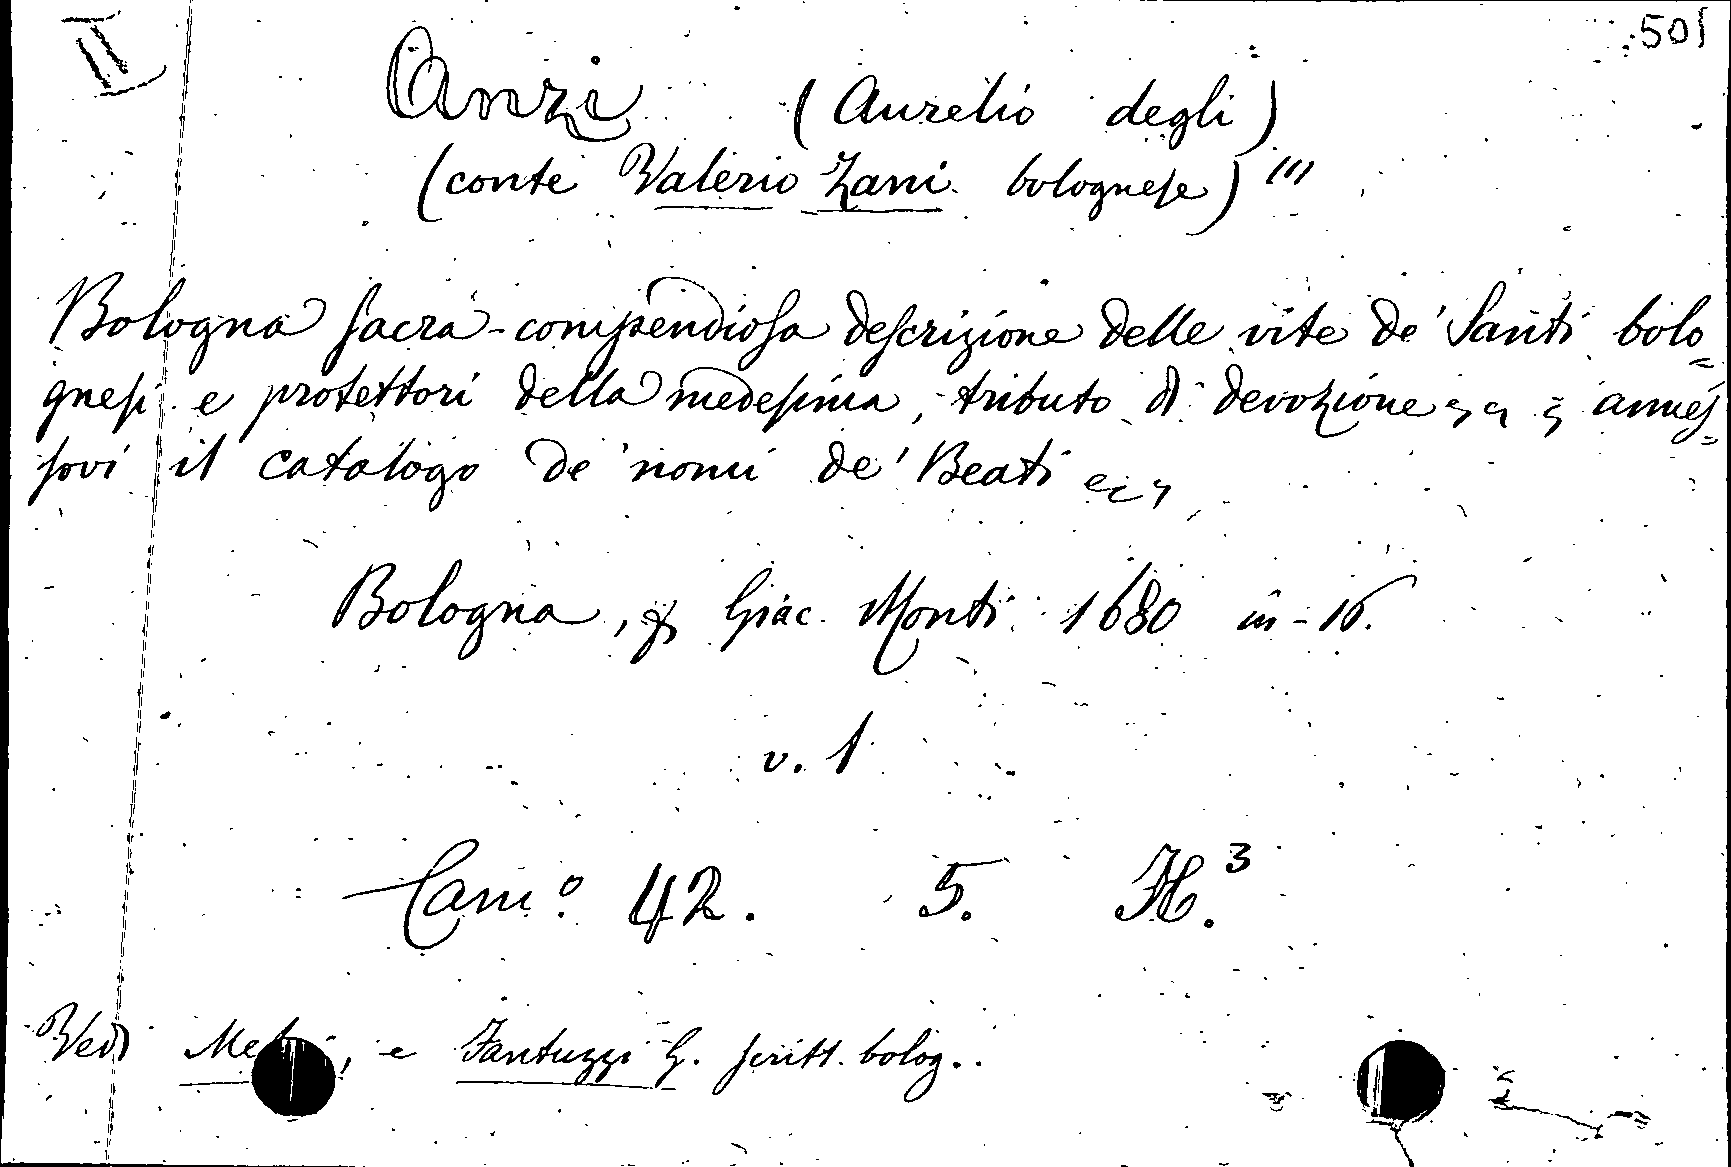 II
501
Anzi (Aurelio degli)
(conte Valerio Zani bolognese) "'
Bologna sacra - compendiosa descrizione delle vite de' Santi bolo=
gnesi e protettori della medesima, tributo di devozione annes=
sovi il catalogo de' nomi de' Beati ecc
Bologna, Giac. Monti 1680 in-16.
v. 1
Cam.º 42. 5. H.³
Vedi , e Fantuzzi G. scritt. bolog..